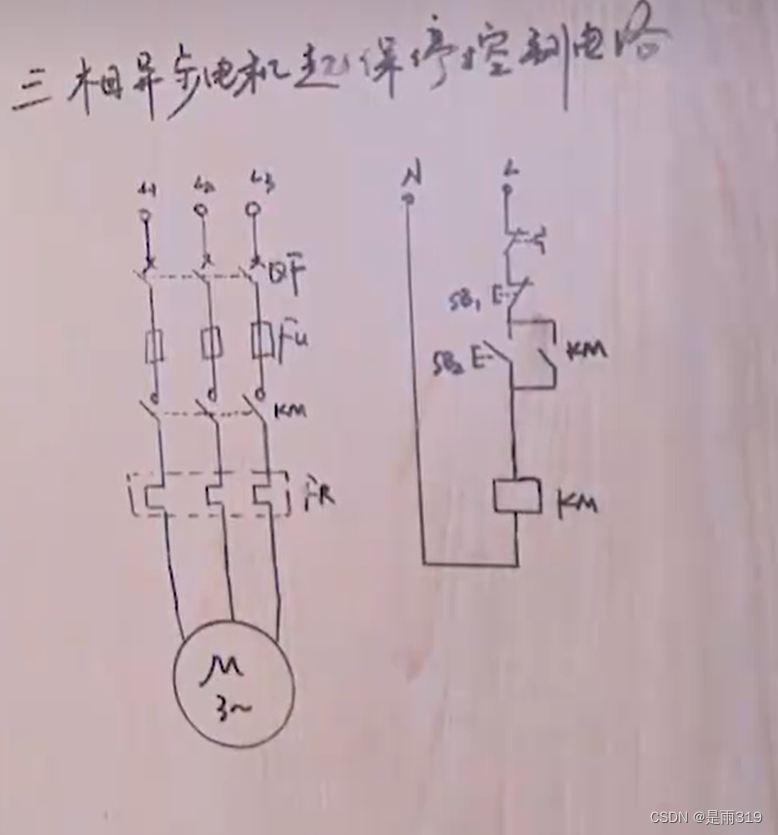 三相异步电机起保停控制电路
L1 L2 L3
N
L
QF
SB1
Fu
KM
SB2
KM
FR
KM
M
3~
CSDN @是雨319